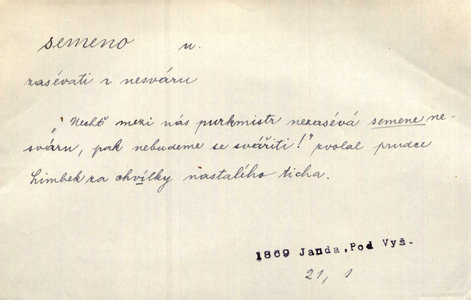 semeno n.
zasévati s nesváru
„Nechť mezi nás purkmistr nezasévá semene ne-
sváru, pak nebudeme se svářiti!" zvolal prudce
Limbek za chvílky nastalého ticha.
1869 Janda, Pod Vyš.
21, 1